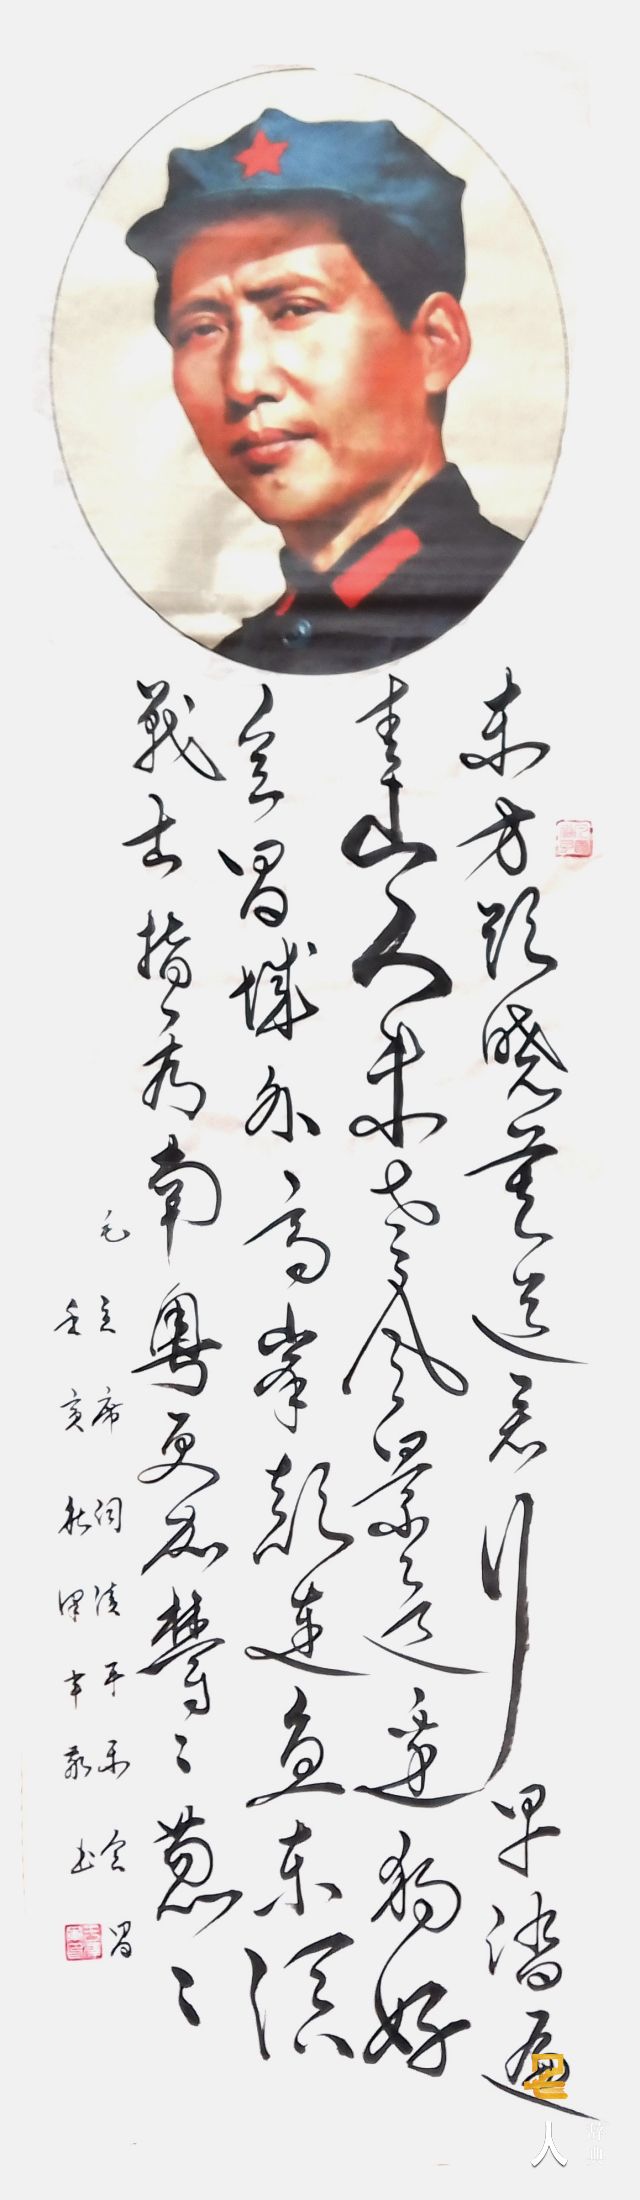 东方欲晓莫道君行早踏遍
青山人未老风景这边独好
会昌城外高峯颠连直东溟
战士指看南粤更加郁々葱々
毛主席词清平乐会昌
亥秋敬书
人
辞典